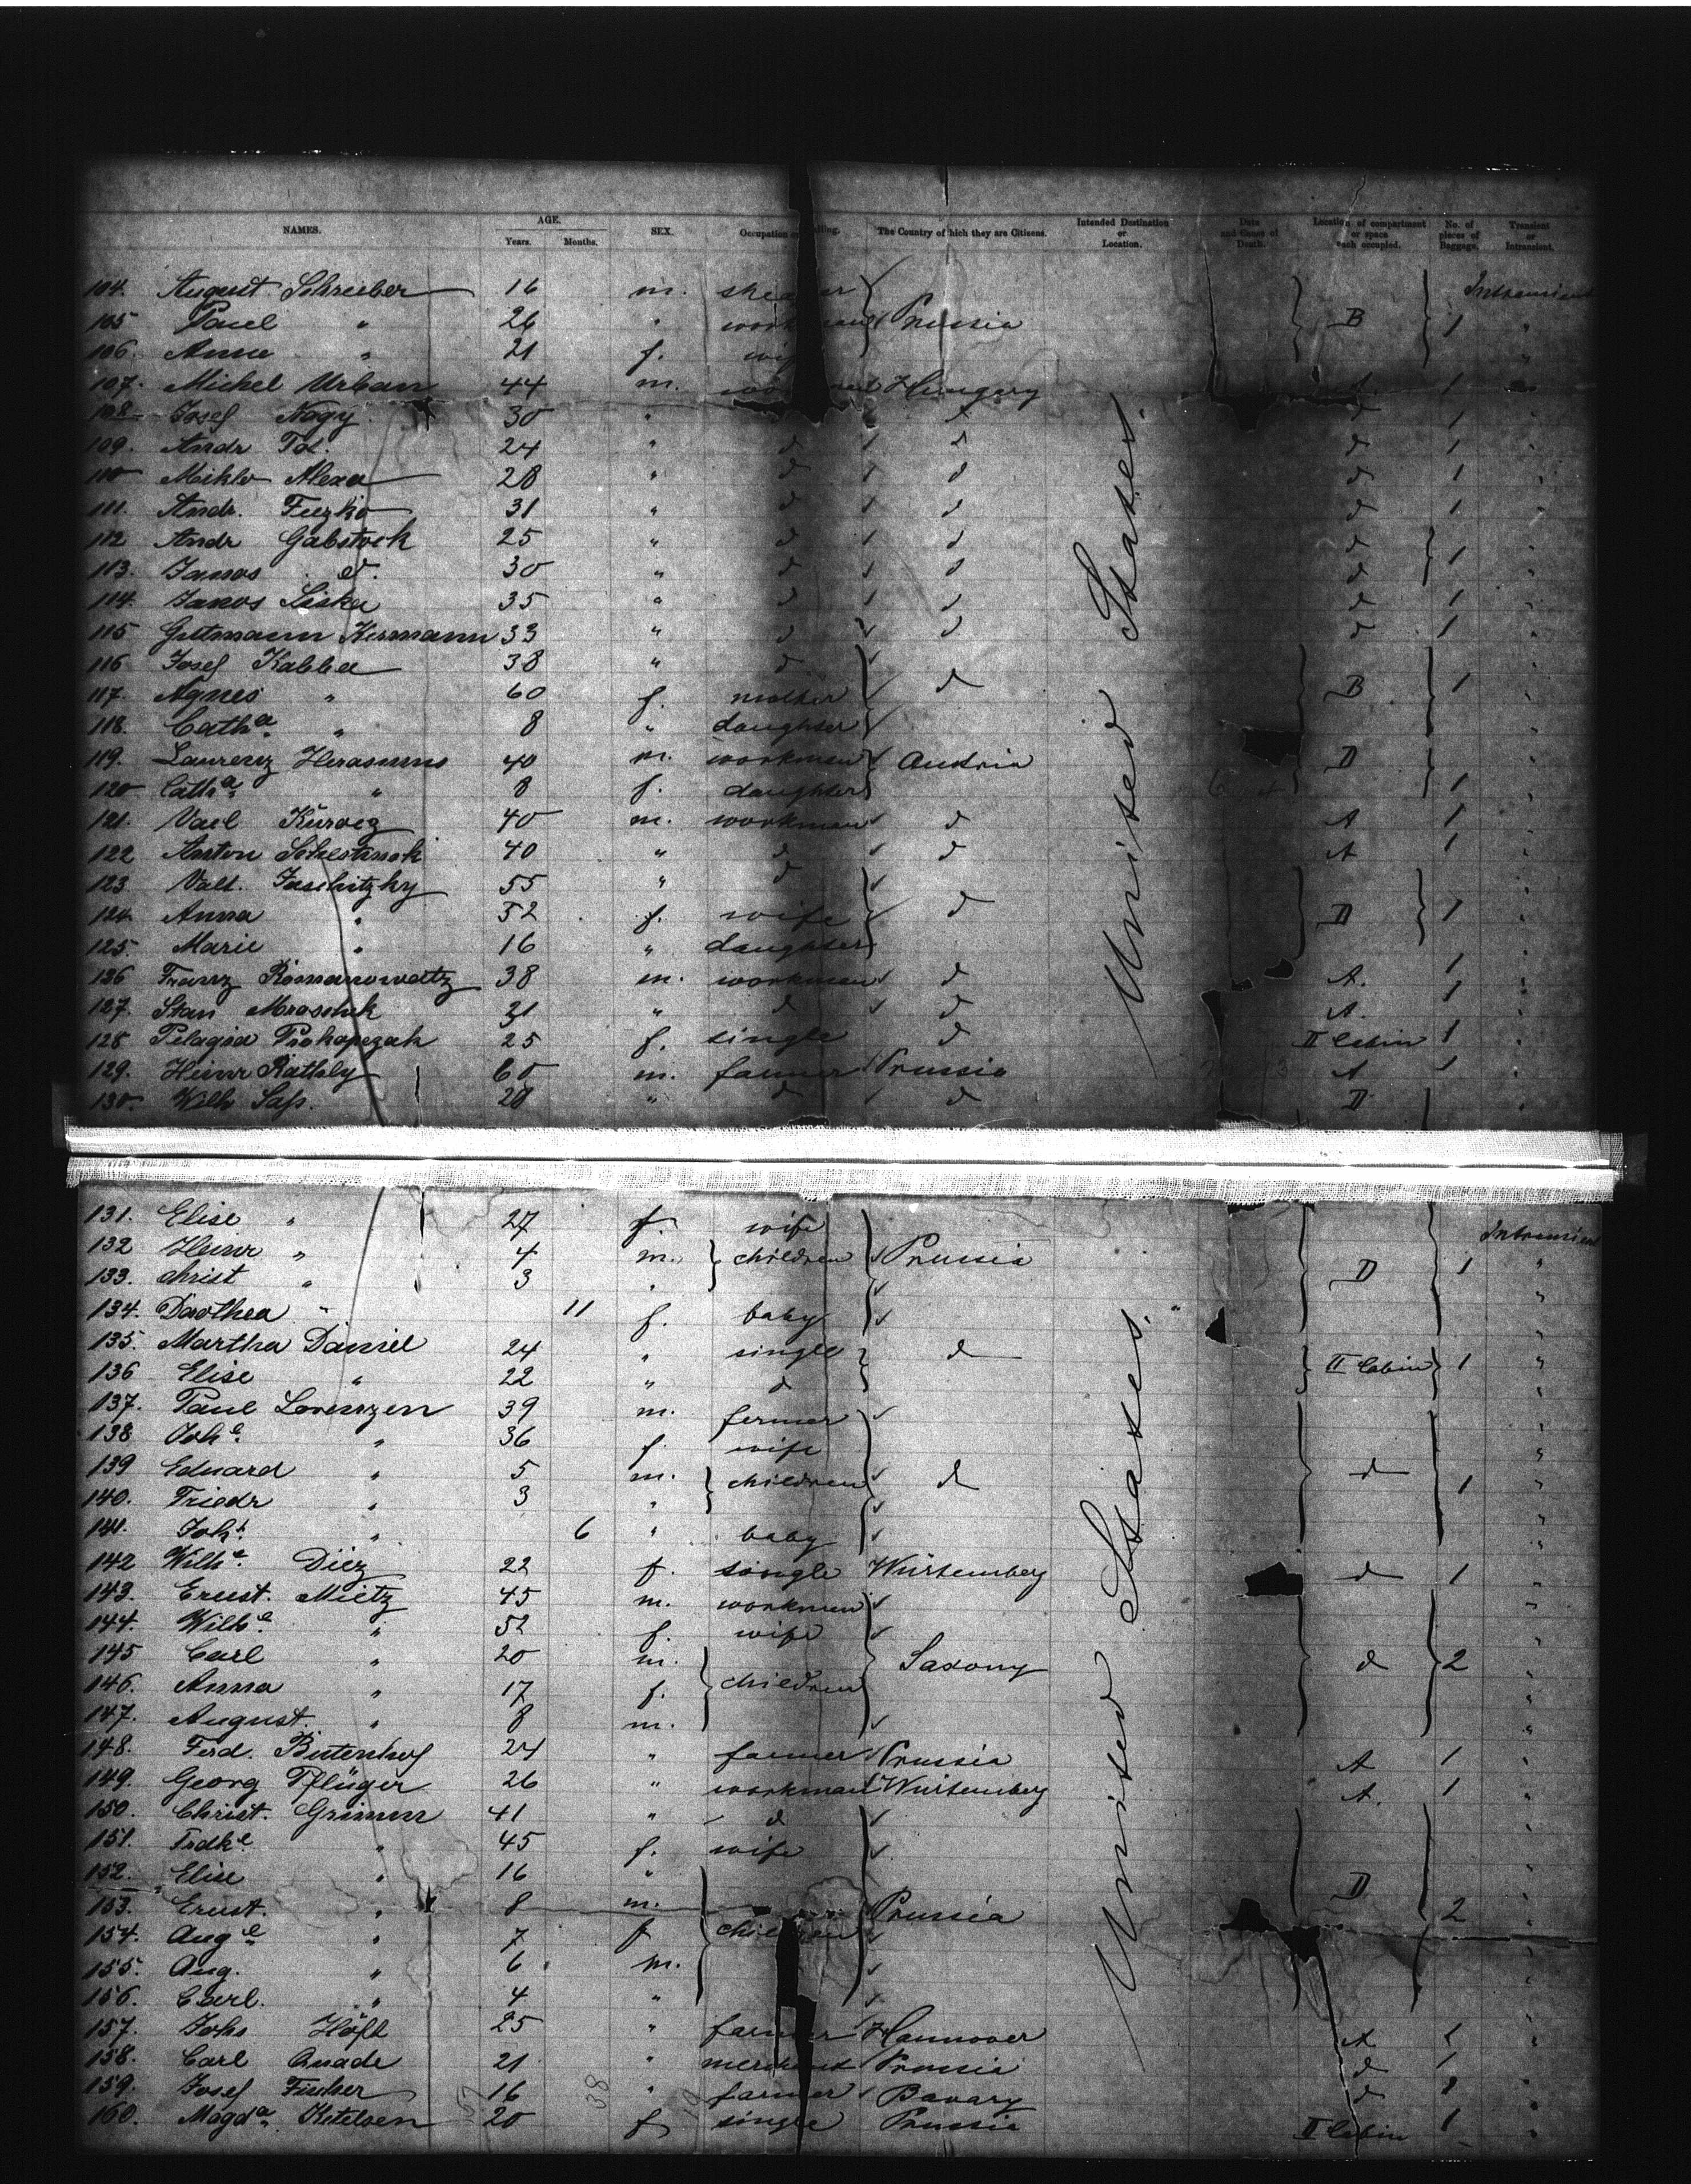 NAMES. AGE. Years. Months. SEX. Occupation or The Country of which they are Citizens. Intended Destination or Location. Date and Cause of Death. Location of compartment or space each occupied. No. of pieces of Baggage. Transient or Intransient.
104. August Schreiber 16 m.
105 Paul " 26 " Prussia B 1 "
106. Anna " 21 f. "
107. Michel Urban 44 m. Hungary A. 1 "
108 Josef Nagy 30 " d d 1 "
109. Andr Tot. 24 " d d d 1 "
110 Miklo Alexa 28 " d d d 1 "
111. Andr. Fuzko 31 " d d d 1 "
112 Andr Gabstock 25 " d d d 1 "
113. Janos d. 30 " d d d "
114. Janos Liska 35 " d d d 1 "
115 Guttmann Hermann 33 " d d d 1 "
116 Josef Kabba 38 " d
117. Agnes " 60 f. mother d B 1 "
118. Catha " 8 " daughter "
119. Laurenz Herasmus 40 m. workman Austria D "
120 Catha " 8 f. daughter 1 "
121. Vael Kurocz 40 m. workman d A 1 "
122 Anton 40 " d d A 1 "
123. Valt. Jaschitzky 55 " d "
124. Anna " 52 f. wife d D 1 "
125. Marie " 16 " daughter "
126 Franz Romanowattz 38 m. workman d A. 1 "
127. Stan Mraschek 21 " d d A. 1 "
128 Pelagia Prokopczak 25 f. single d II Cabin 1 "
129. Heinr Rathsly 60 m. farmer Prussia A 1 "
130. Wilh Sass. 28 " d d D "
United States.
131. Elise " 27 f. wife Intransient
132 Heinr " 4 m. children Prussia D 1 "
133. Christ " 3 " "
134. Dorothea " 11 f. baby "
135. Martha Daniel 24 " single d II Cabin 1 "
136 Elise " 22 " d "
137. Paul Lorenzen 39 m. farmer "
138 Johe. " 36 f. wife "
139 Eduard " 5 m. children d d 1 "
140. Friedr " 3 " "
141. Johs. " 6 " baby "
142 Wilhe. Diez 22 f. single Würtemberg d 1 "
143. Ernst. Mietz 45 m. workman "
144. Wilhe. " 52 f. wife "
145 Carl " 20 m. children Saxony d 2 "
146. Anna " 17 f. "
147. August. " 8 m. "
148. Ferd. Butenhof 24 " farmer Prussia A 1 "
149. Georg Pflüger 26 " workman Würtemberg A. 1 "
150. Christ. Grimm 41 " d "
151. Frdke " 45 f. wife "
152. Elise " 16 " D "
153. Ernst. " 8 m. children Prussia 2 "
154. Auge " 7 f "
155. Aug. " 6 m. "
156. Carl. " 4 " "
157. Johs Höft 25 " farmer Hannover A 1 "
158. Carl Quade 21 " merchant Prussia d 1 "
159. Josef Fischer 16 " farmer Bavary d 1 "
160. Magda. Ketelsen 20 f single Prussia II Cabin 1
United States.